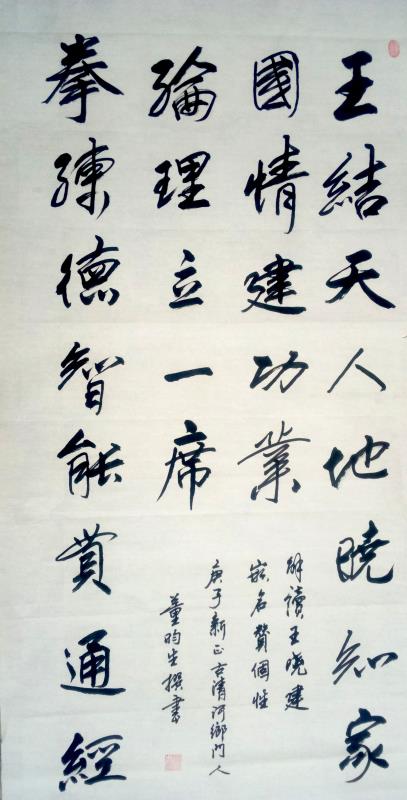 王結天人地曉知家
國情建功業
拳練德智能貫通經
綸理立一席
解讀王晓建
嵌名贊個性
庚子新正古清河鄉門人
董昀生撰書